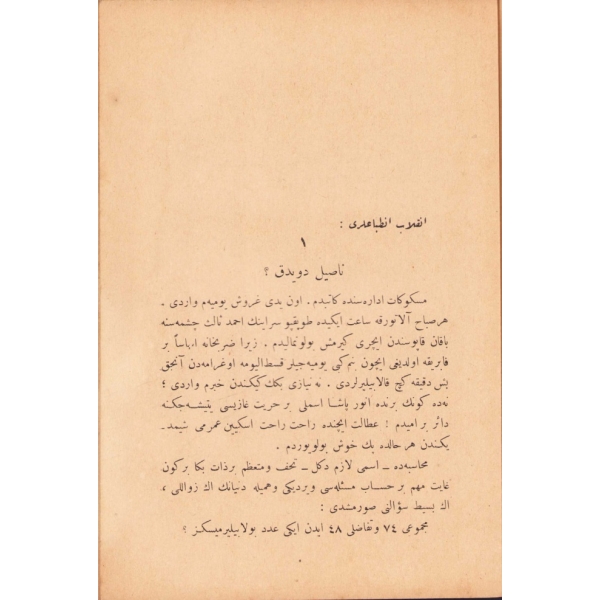 انقلاب انطباعلری :
١
ناصیل دویدق ؟
مسكوكات اداره‌سنده كاتبدم . اون یدی غروش یومیه‌م واردی .
هر صباح آلاتورقه ساعت ایكیده طوپقپو سراینك احمد ثالث چشمه‌سنه
باقان قاپوسندن ایچری كیرمش بولونمالیدم . زیرا ضربخانه
فابریقه اولدیغی ایچون بنم كبی یومیه‌جیلر قسط‌الیومه اوغرامه‌دن آنجق
بش دقیقه كچ قالابیلیرلردی . نه نیازی بكك كیكندن خبرم واردی ؛
نه‌ده كونك برنده انور پاشا اسملی بر حریت غازیسی یتیشه‌جكنه
دائر بر امیدم : عطالت ایچنده راحت راحت اسكیین عمرمی شیمد-
یكندن هر حالده پك خوش بولویوردم .
محاسبه‌ده ـ اسمی لازم دكل ـ تحف ومتعظم بر ذات بكا بر كون
غایت مهم بر حساب مسئله‌سی ویردیكی وهمیله دنیانك اك زواللی ،
اك بسیط سؤالنی صورمشدی :
مجموعی ٧٤ وتفاضلی ٤٨ ایدن ایكی عدد بولابیلیرمیسكز ؟